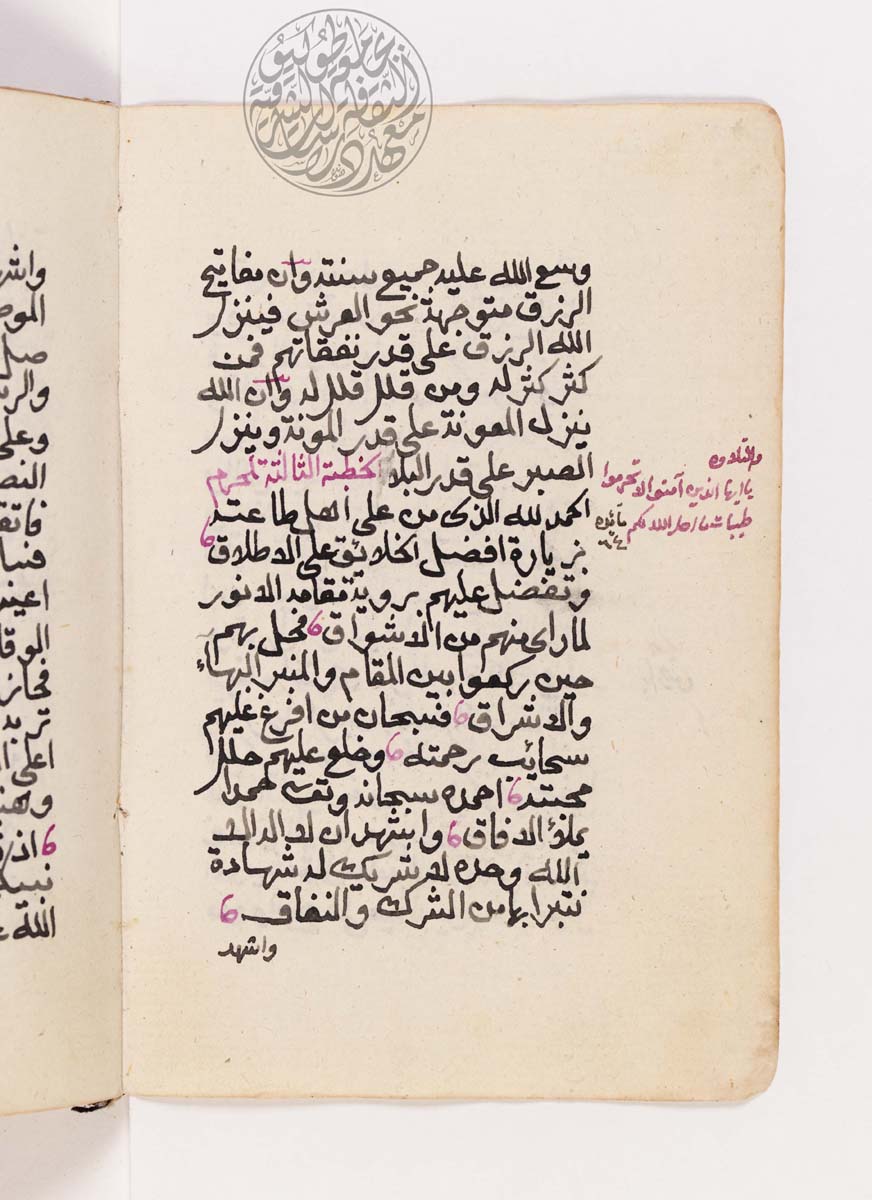 وسع الله عليه جميع سنته وان مفاتيح
الرزق متوجهة نحو العرش فينزل
الله الرزق على قدر نفقاتهم فمن
كثر كثر له ومن قلل قلل له وان الله
ينزل المعونة على قدر المونة وينزل
الصبر على قدر البلا الخطبة الثالثة لمحرم
الحمد لله الذى من على أهل طاعته
بزيارة افضل الخلائق على الاطلاق
وتفضل عليهم بروية مقامه الانور
لما راى منهم من الاشواق فحل بهم
حين ركعوا بين المقام والمنبر البهاء
والاشراق فسبحان من افرغ عليهم
سحائب رحمته وخلع عليهم حلل
محبته احمده سبحانه وتعالى حمدا
يملؤ الافاق واشهد ان لا اله الا
الله وحده لا شريك له شهادة
نتبرا بها من الشرك والنفاق
واشهد
والتلاوه
يا ايها الذين آمنوا لا تحرموا
طيبات ما احل الله لكم
مائده
واشه